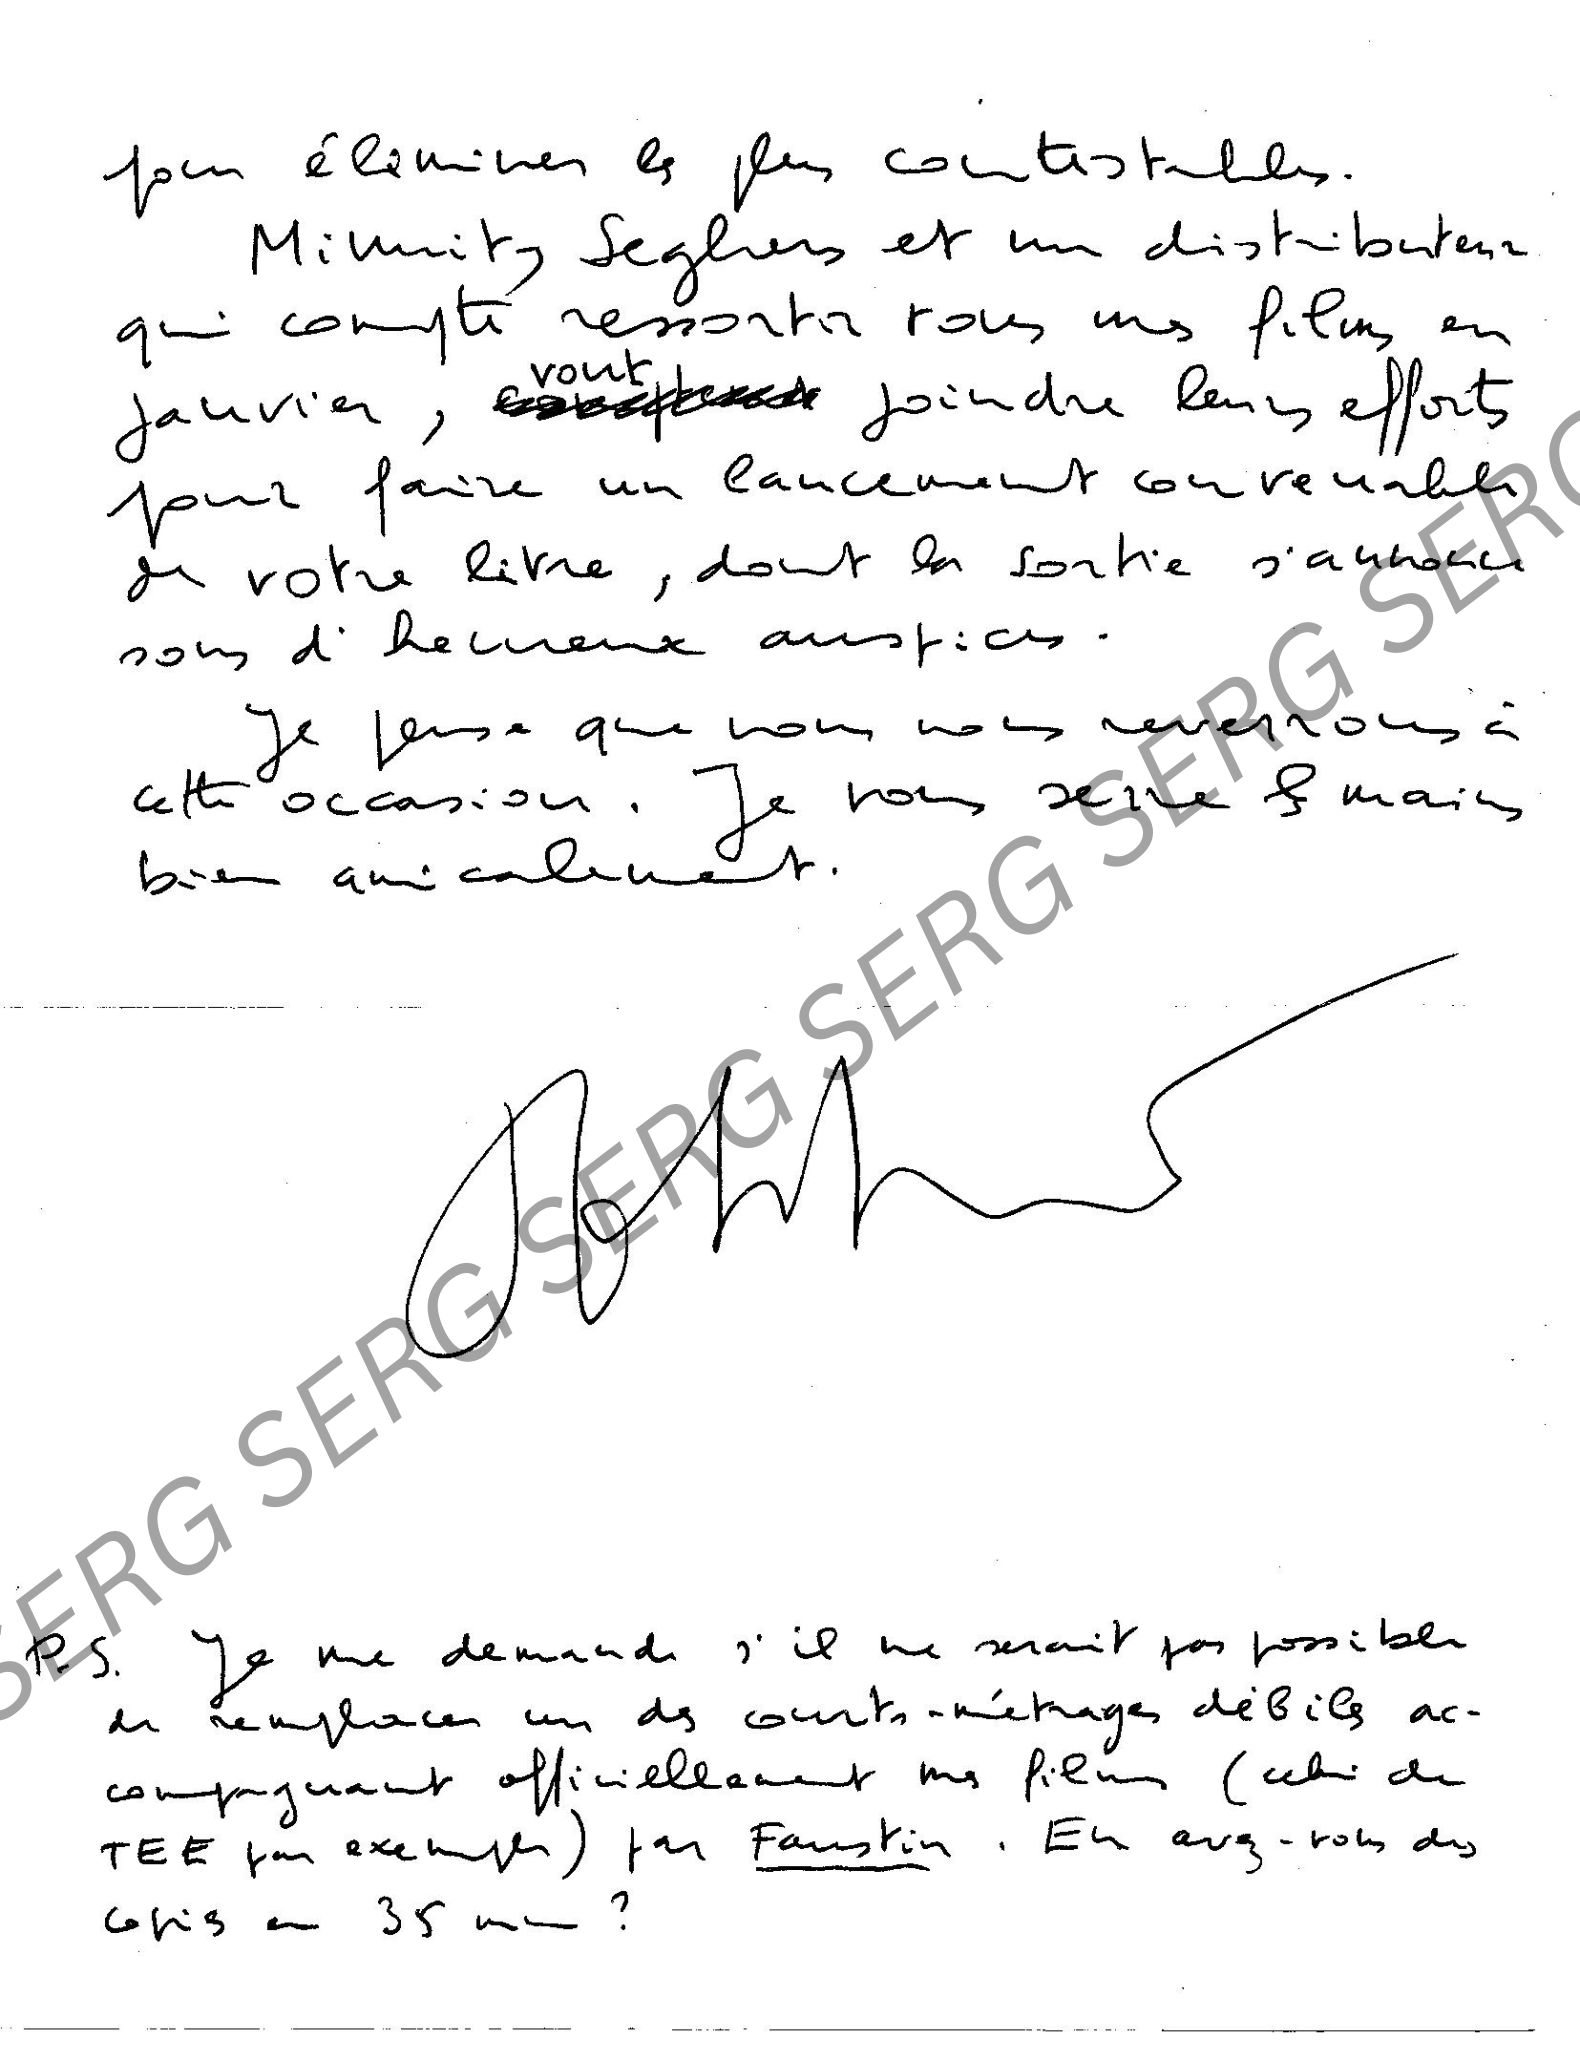 pour éliminer les plus contestables.
Minnitz, Seghers et un distributeur
qui compte ressortir tous mes films en
janvier, vont joindre leurs efforts
pour faire un lancement convenable
de votre livre, dont la sortie s'annonce
sous d'heureux auspices.
Je pense que nous nous reverrons à
cette occasion. Je vous serre les mains
bien amicalement.
P.S. Je me demande s'il ne serait pas possible
de remplacer un des courts-métrages débiles ac-
compagnant officiellement mes films (celui de
TEE par exemple) par Faustin. En avez-vous des
copies en 35 mm ?
SERG SERG SERG SERG SERG SERG SERG SERG SERG